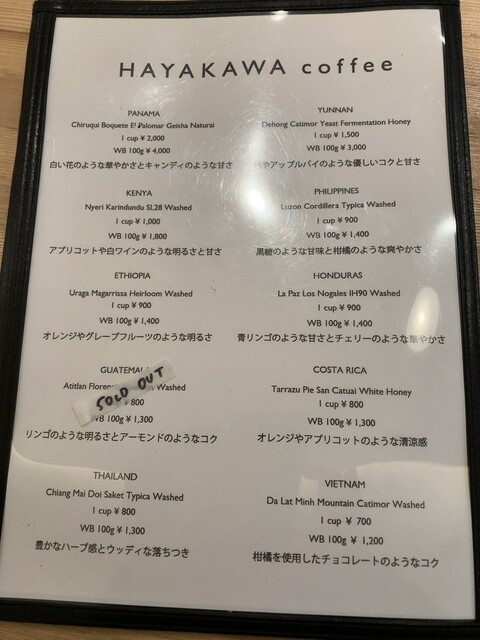 HAYAKAWA coffee
PANAMA
Chiruqui Boquete El Palomar Geisha Natural
1 cup ¥ 2,000
WB 100g ¥ 4,000
白い花のような華やかさとキャンディのような甘さ
YUNNAN
Dehong Catimor Yeast Fermentation Honey
1 cup ¥ 1,500
WB 100g ¥ 3,000
やアップルパイのような優しいコクと甘さ
KENYA
Nyeri Karindundu SL28 Washed
1 cup ¥ 1,000
WB 100g ¥ 1,800
アプリコットや白ワインのような明るさと甘さ
PHILIPPINES
Luzon Cordillera Typica Washed
1 cup ¥ 900
WB 100g ¥ 1,400
黒糖のような甘味と柑橘のような爽やかさ
ETHIOPIA
Uraga Magarrissa Heirloom Washed
1 cup ¥ 900
WB 100g ¥ 1,400
オレンジやグレープフルーツのような明るさ
HONDURAS
La Paz Los Nogales IH90 Washed
1 cup ¥ 900
WB 100g ¥ 1,400
青リンゴのような甘さとチェリーのような華やかさ
GUATEMALA
Atitlan Washed
SOLD OUT
¥ 800
WB 100g ¥ 1,300
リンゴのような明るさとアーモンドのようなコク
COSTA RICA
Tarrazu Pie San Catuai White Honey
1 cup ¥ 800
WB 100g ¥ 1,300
オレンジやアプリコットのような清涼感
THAILAND
Chiang Mai Doi Saket Typica Washed
1 cup ¥ 800
WB 100g ¥ 1,300
豊かなハーブ感とウッディな落ちつき
VIETNAM
Da Lat Minh Mountain Catimor Washed
1 cup ¥ 700
WB 100g ¥ 1,200
柑橘を使用したチョコレートのようなコク